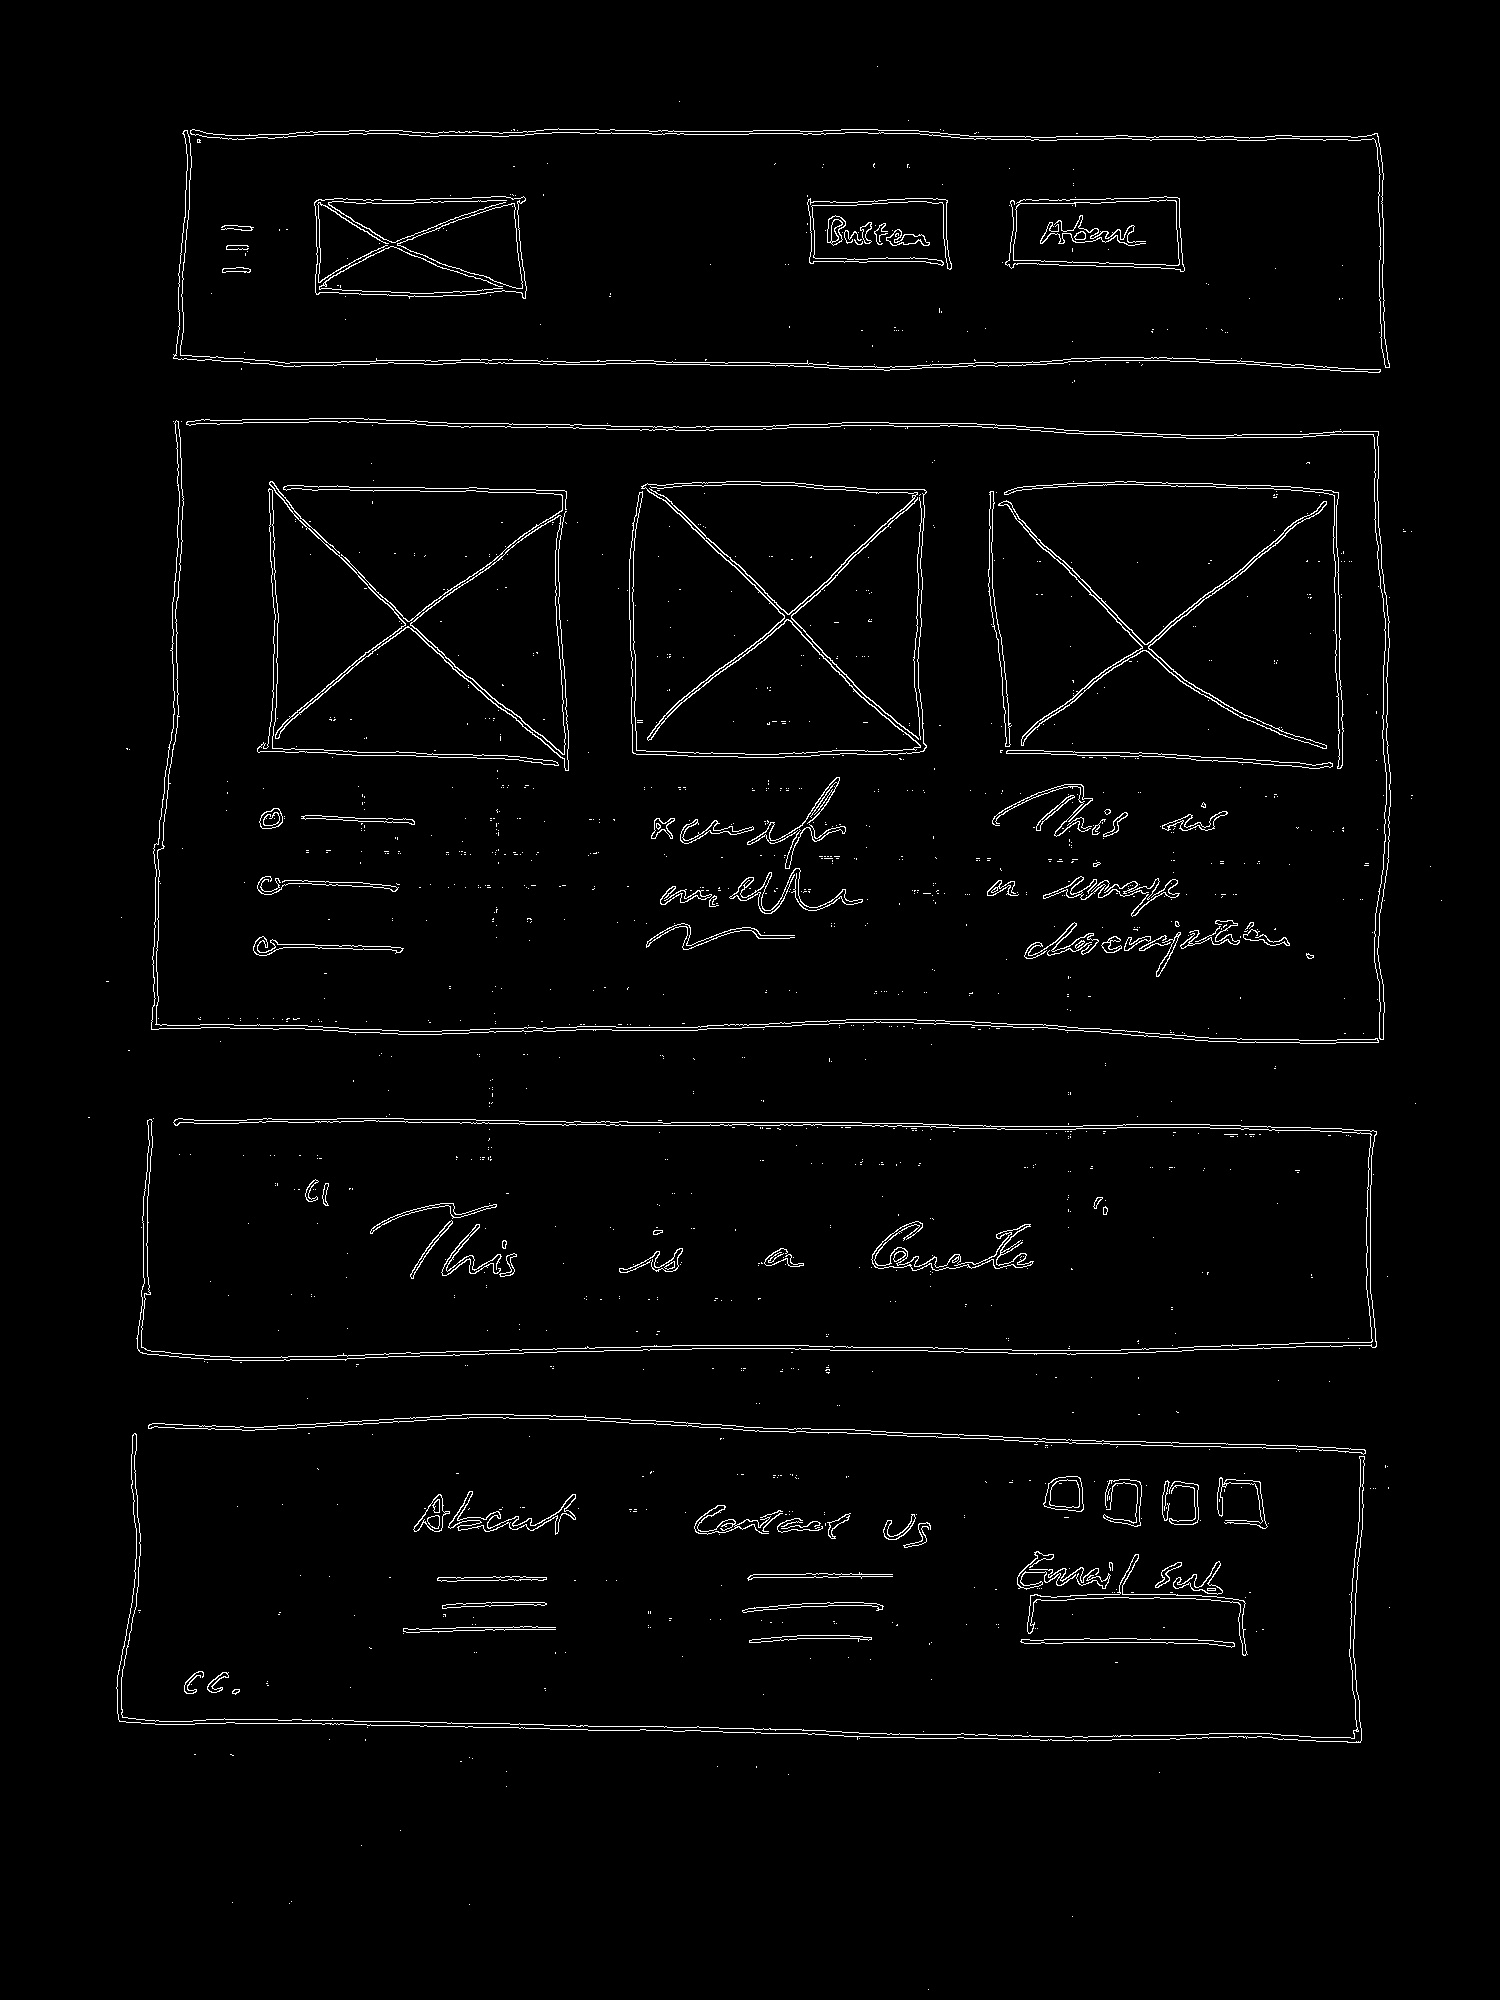 Button About
This is
a image
description.
“ This is a Quote ”
About Contact Us
Email Sub
CC.